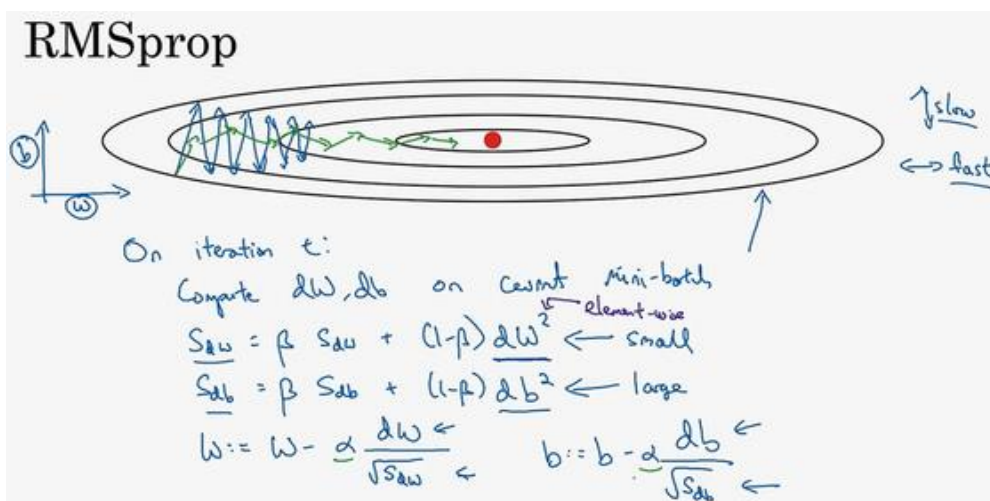 RMSprop
↕ slow
↔ fast
b
w
On iteration t:
Compute dW, db on current mini-batch
element-wise
S_dw = β S_dw + (1-β) dW² ← small
S_db = β S_db + (1-β) db² ← large
w := w - α dw/√S_dw ← ←
b := b - α db/√S_db ← ←